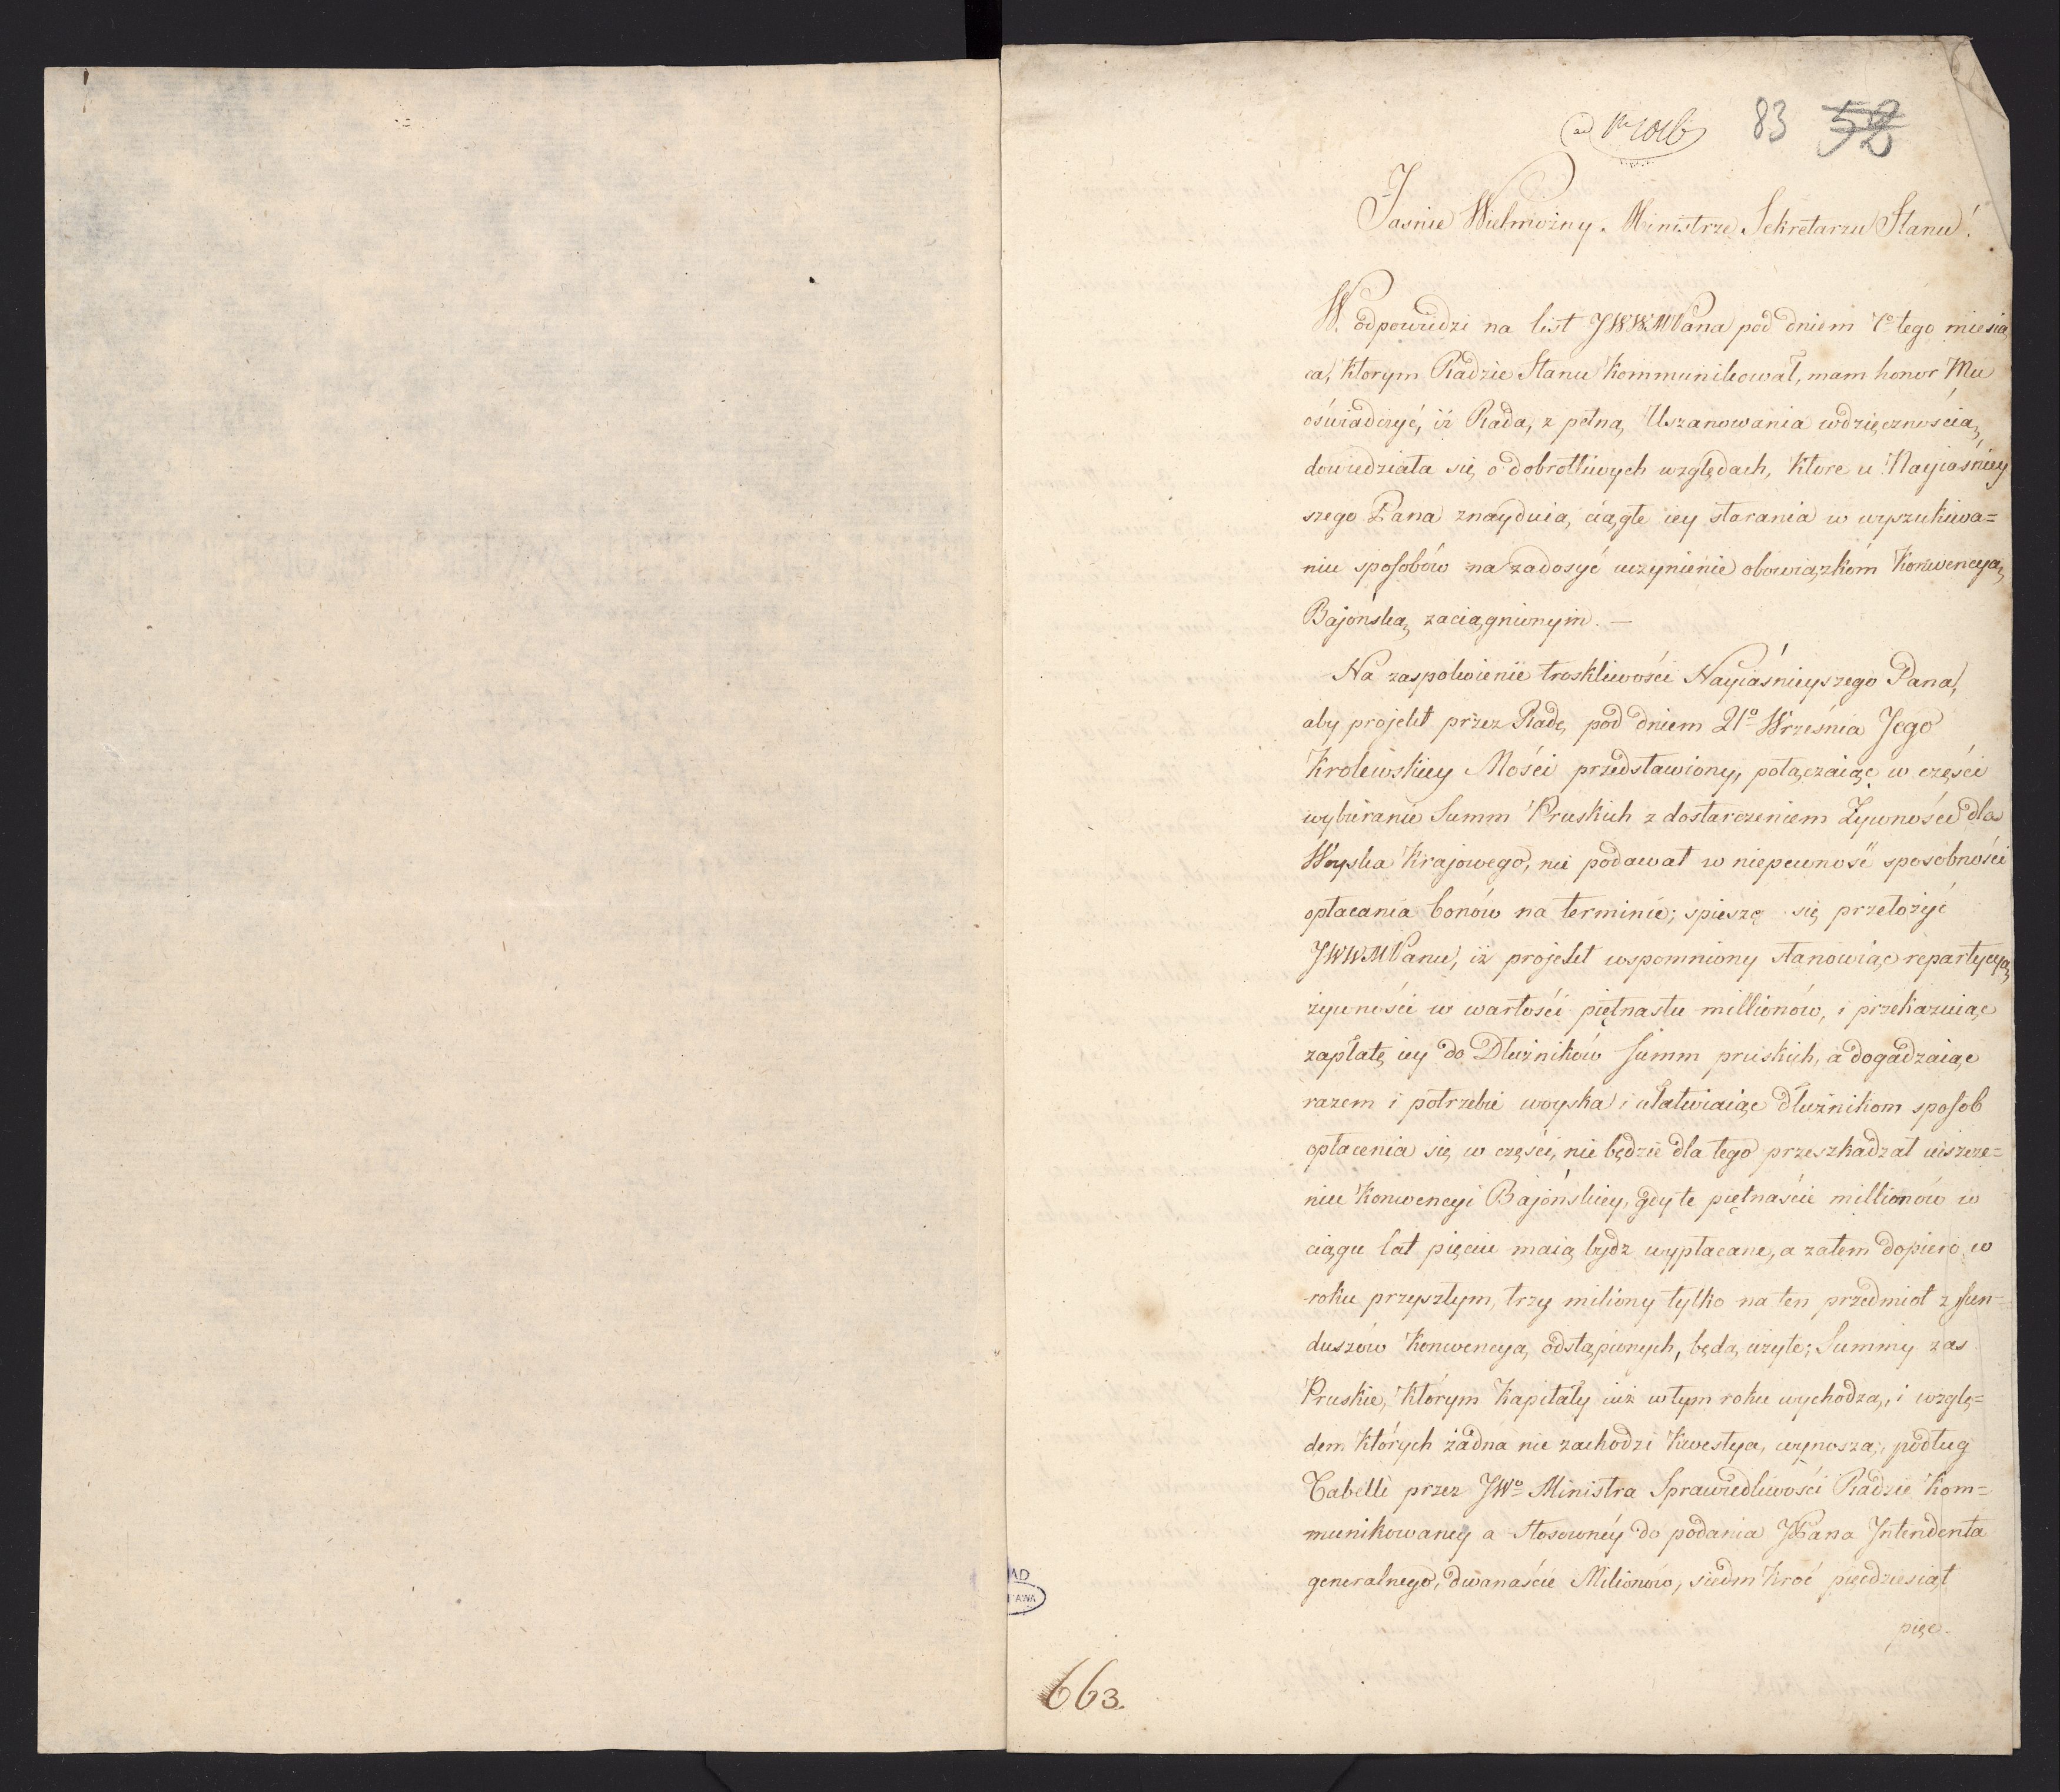 ad Nr 1016
83 52
Jasnie Wielmożny Ministrze Sekretarzu Stanu!
W odpowiedzi na list JWWMPana pod dniem 7º tego miesią
ca, Ktorym Radzie Stanu Kommunikował, mam honor Mu
oświadczyć, iż Rada, z pełną Uszanowania wdzięcznością,
dowiedziała się o dobrotliwych względach, Ktore u Nayiaśniey
szego Pana znayduią ciągłe iey starania w wyszukiwa=
niu sposobów na zadosyć uczynienie obowiązkom Konwencyą
Bajońską zaciągnionym. —
Na zaspokoienie troskliwości Nayiaśnieyszego Pana,
aby projekt przez Radę pod dniem 21º Września Jego
Krolewskiey Mości przedstawiony, połączaiąc w części
wybieranie Summ Pruskich z dostarczeniem Żywności dla
Woyska Krajowego, nie podawał w niepewność sposobności
opłacania bonów na terminie; spieszę się przełożyć
JWWMPanu, iż projekt wspomniony stanowiąc repartycyą
żywności w wartości piętnastu millionów, i przekazuiąc
zapłatę iey do Dłużników summ pruskich, a dogadzaiąc
razem i potrzebie woyska i ułatwiaiąc dłużnikom sposob
opłacenia się w części, nie będzie dla tego przeszkadzał uiszcze=
niu Konwencyi Bajońskiey, gdy te piętnaście millionów w
ciągu lat pięciu maią bydz wypłacane, a zatem dopiero w
roku przyszłym, trzy miliony tylko na ten przedmiot z fun=
duszów Konwencyą odstąpionych, będą użyte; Summy zas
Pruskie, Którym Kapitały iuż w tym roku wychodzą, i wzglę=
dem Których żadna nie zachodzi Kwestya, wynoszą, podług
Tabelli przez JWº Ministra Sprawiedliwości Radzie Kom=
munikowaney a stosowney do podania JPana Intendenta
generalnego, dwanaście Milionów, siedm Kroć pięćdziesiąt
pięć.
AD
AWA
663.